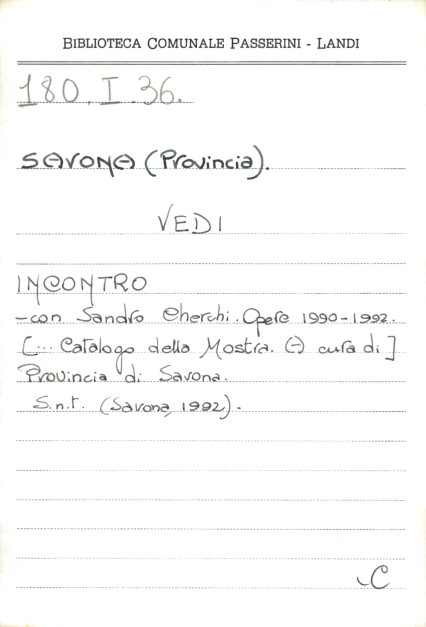 BIBLIOTECA COMUNALE PASSERINI - LANDI
180.I.36.
SAVONA (Provincia).
VEDI
INCONTRO
-con Sandro Cherchi. Opere 1990-1992.
[... Catalogo della Mostra. (A) cura di]
Provincia di Savona.
S.n.t. (Savona, 1992).
C